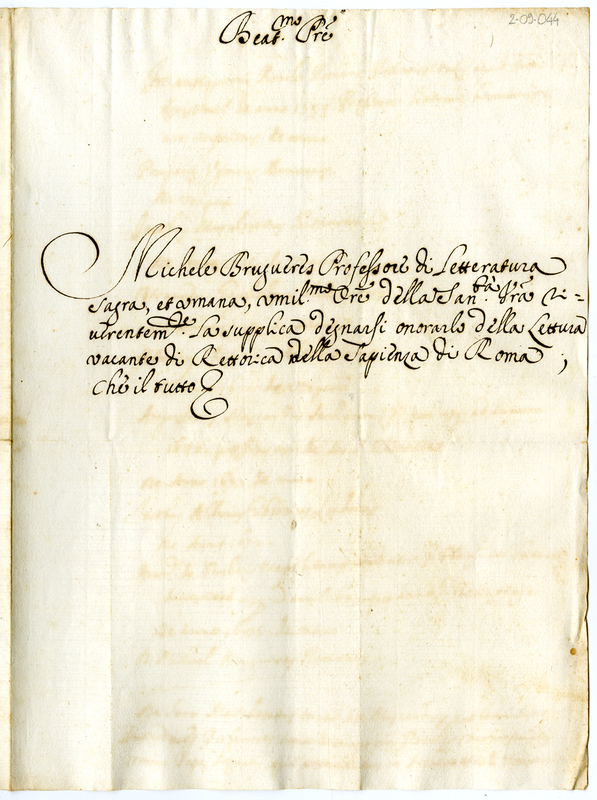 2-09-044
Beat.mo Prē
Michele Brugueres Professore di Letteratura
sagra, et vmana, vmil.mo Ore della San.tà Vrā ri=
uerentem.te La supplica degnarsi onorarlo della Lettura
vacante di Rettorica nella Sapienza di Roma ;
Che il tutto